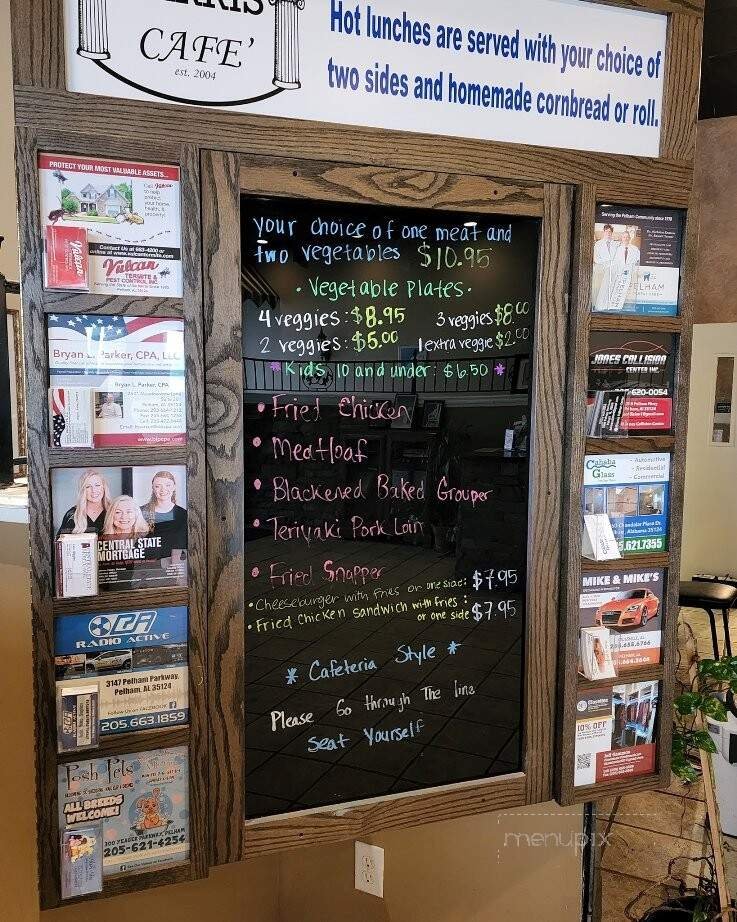 CAFE'
est. 2004
Hot lunches are served with your choice of
two sides and homemade cornbread or roll.
PROTECT YOUR MOST VALUABLE ASSETS...
Vulcan
TERMITE &
PEST CONTROL INC.
Bryan L. Parker, CPA, LLC
Bryan L. Parker, CPA
CENTRAL STATE
MORTGAGE
RADIO ACTIVE
3147 Pelham Parkway
Pelham, AL 35124
205.663.1859
Posh Pets
ALL BREEDS
WELCOME!
300 YEAGER PARKWAY, PELHAM
205-621-4254
your choice of one meat and
two vegetables $10.95
• Vegetable Plates •
4 veggies: $8.95 3 veggies $8.00
2 veggies: $5.00 1 extra veggie $2.00
* Kids 10 and under: $6.50 *
• Fried Chicken
• Meatloaf
• Blackened Baked Grouper
• Teriyaki Pork Loin
• Fried Snapper
• Cheeseburger with fries or one side: $7.95
• Fried Chicken Sandwich with fries : $7.95
or one side
* Cafeteria Style *
Please Go through The line
Seat Yourself
Serving the Pelham Community since 1978
PELHAM
JONES COLLISION
CENTER INC.
620-0054
Cahaba
Glass
- Automotive
- Residential
- Commercial
621.7355
MIKE & MIKE'S
10% OFF
menupix